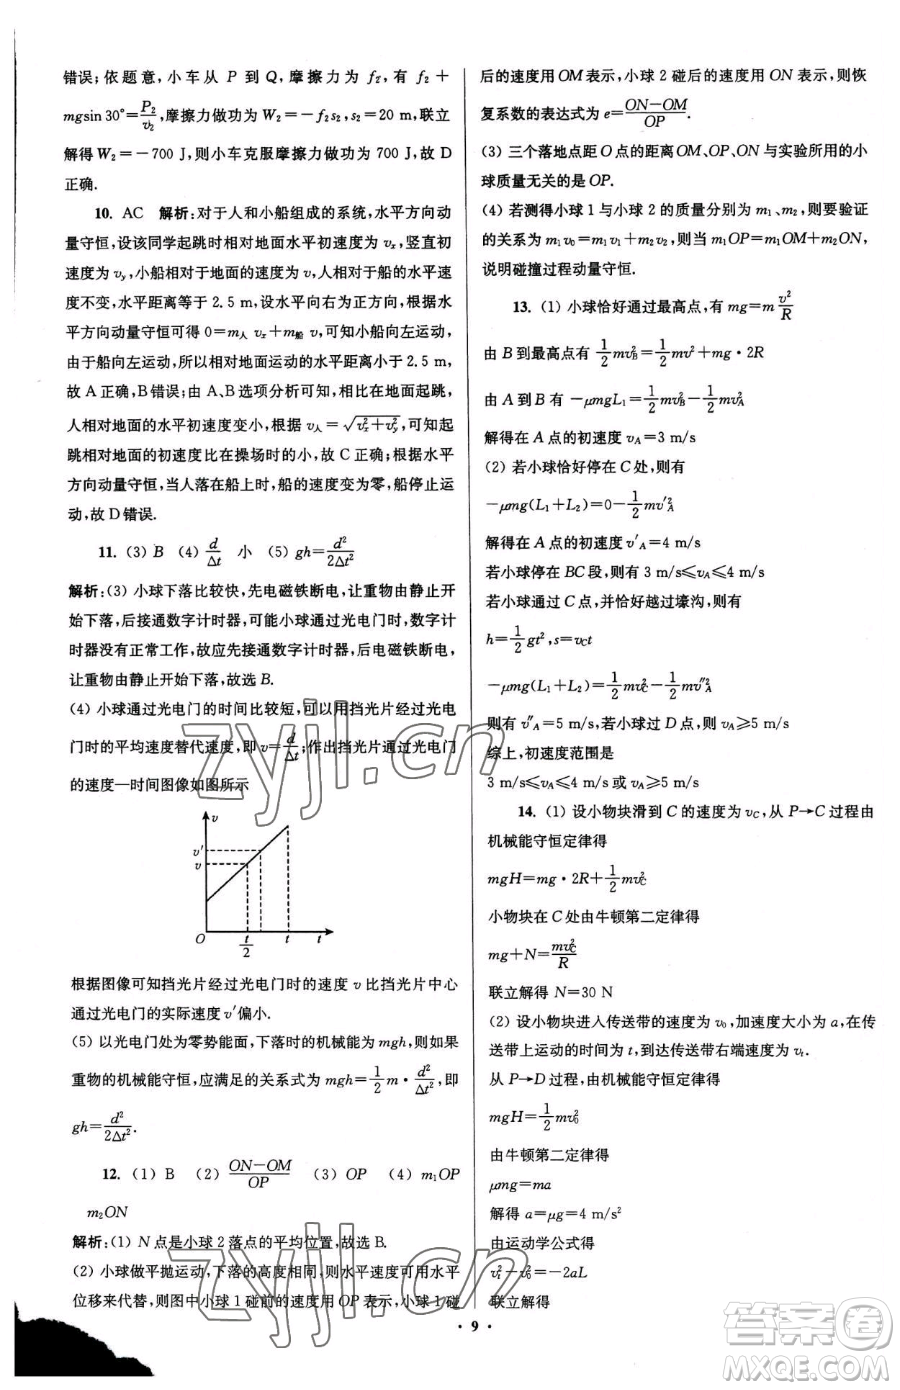 错误;依题意,小车从 P 到 Q,摩擦力为 f₂,有 f₂+
mgsin 30°=P₂/v₂,摩擦力做功为 W₂=-f₂s₂,s₂=20 m,联立
解得 W₂=-700 J,则小车克服摩擦力做功为 700 J,故 D
正确.
10. AC 解析:对于人和小船组成的系统,水平方向动
量守恒,设该同学起跳时相对地面水平初速度为 vₓ,竖直初
速度为 v_y,小船相对于地面的水平速度为 v,船的水平速
度不变,水平距离等于 2.5 m,取向右为正方向,根据水
平方向动量守恒可得 0=m人 vₓ+m船 v,可知小船向左运动,
由于船向左运动,所以相对地面运动距离小于 2.5 m,
故 A 正确,B 错误;由 A、B 选项分析可知,相对地面起跳,
人相对地面的水平初速度变小,根据 v人=√(vₓ²+v_y²) 可知起
跳相对地面的初速度比在操场时的小,故 C 正确;根据水
平方向动量守恒,当人落在船上时,船的速度变为零,船停止运
动,故 D 错误.
11. (3) B (4) d/Δt 小 (5) gh=d²/2Δt²
解析:(3) 小球下落比较快,先电磁铁断电,让重物由静止开
始下落,后接通数字计时器,可能小球通过光电门时,数字计
时器没有正常工作,故应先接通数字计时器,后电磁铁断电,
让重物由静止开始下落,故选 B.
(4) 小球通过光电门的时间比较短,可以用挡光片经过光电
门时的平均速度替代速度,即 v=d/Δt;作出挡光片通过光电门
的速度—时间图像如图所示
v
v′
v
O t/2 t t
根据图像可知挡光片经过光电门时的速度 v 比挡光片中心
通过光电门的实际速度 v′偏小.
(5) 以光电门处为零势能面,下落时的机械能为 mgh,则如果
重物的机械能守恒,应满足的关系式为 mgh=1/2 m·d²/Δt²,即
gh=d²/2Δt².
12. (1) B (2) (ON-OM)/OP (3) OP (4) m₁OP
m₂ON
解析:(1) N 点是小球 2 落点的平均位置,故选 B.
(2) 小球做平抛运动,下落的高度相同,则水平速度可用水平
位移来代替,则图中小球 1 碰前的速度用 OP 表示,小球 1 碰
后的速度用 OM 表示,小球 2 碰后的速度用 ON 表示,则恢
复系数的表达式为 e=(ON-OM)/OP.
(3) 三个落地点距 O 点的距离 OM、OP、ON 与实验所用的小
球质量无关的是 OP.
(4) 若测得小球 1 与小球 2 的质量分别为 m₁、m₂,则要验证
的关系为 m₁v₀=m₁v₁+m₂v₂,则当 m₁OP=m₁OM+m₂ON,
说明碰撞过程动量守恒.
13. (1) 小球恰好通过最高点,有 mg=m v²/R
由 B 到最高点有 1/2 mv_B²=1/2 mv²+mg·2R
由 A 到 B 有 -μmgL₁=1/2 mv_B²-1/2 mv_A²
解得在 A 点的初速度 v_A=3 m/s
(2) 若小球恰好停在 C 处,则有
-μmg(L₁+L₂)=0-1/2 mv′_A²
解得在 A 点的初速度 v′_A=4 m/s
若小球停在 BC 段,则有 3 m/s≤v_A≤4 m/s
若小球通过 C 点,并恰好越过壕沟,则有
h=1/2 gt²,s=v_C t
-μmg(L₁+L₂)=1/2 mv_C²-1/2 mv″_A²
则有 v″_A=5 m/s,若小球过 D 点,则 v_A≥5 m/s
综上,初速度范围是
3 m/s≤v_A≤4 m/s 或 v_A≥5 m/s
14. (1) 设小物块滑到 C 的速度为 v_C,从 P→C 过程由
机械能守恒定律得
mgH=mg·2R+1/2 mv_C²
小物块在 C 处由牛顿第二定律得
mg+N=mv_C²/R
联立解得 N=30 N
(2) 设小物块进入传送带的速度为 v₀,加速度大小为 a,在传
送带上运动的时间为 t,到达传送带右端速度为 v_t.
从 P→D 过程,由机械能守恒定律得
mgH=1/2 mv₀²
由牛顿第二定律得
μmg=ma
解得 a=μg=4 m/s²
由运动学公式得
v_t²-v₀²=-2aL
联立解得
· 9 ·
zyjl.cn
zyjl.cn
答案圈
MXQE.COM